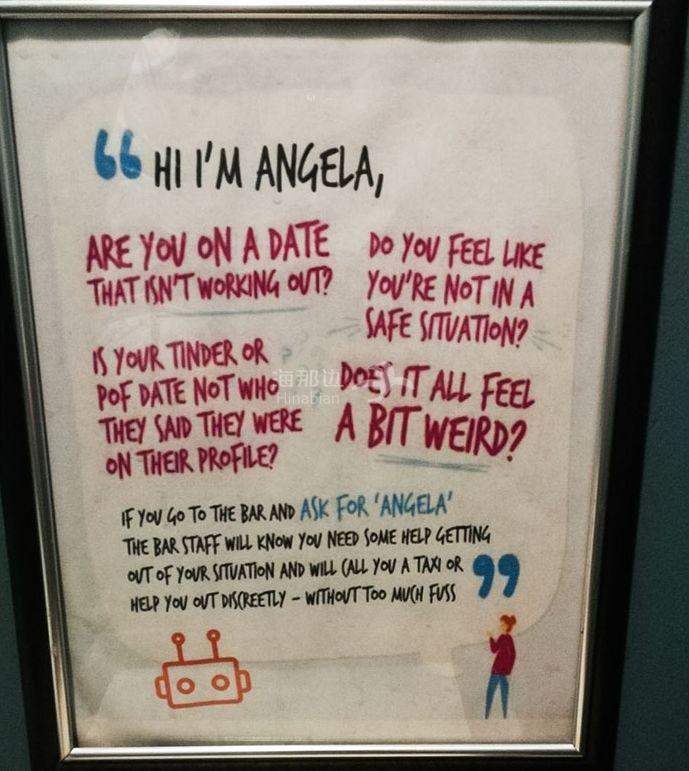 “ HI I'M ANGELA,
ARE YOU ON A DATE
THAT ISN'T WORKING OUT?
DO YOU FEEL LIKE
YOU'RE NOT IN A
SAFE SITUATION?
IS YOUR TINDER OR
POF DATE NOT WHO
THEY SAID THEY WERE
ON THEIR PROFILE?
DOES IT ALL FEEL
A BIT WEIRD?
海那边
Hinabian
IF YOU GO TO THE BAR AND ASK FOR 'ANGELA'
THE BAR STAFF WILL KNOW YOU NEED SOME HELP GETTING
OUT OF YOUR SITUATION AND WILL CALL YOU A TAXI OR
HELP YOU OUT DISCREETLY – WITHOUT TOO MUCH FUSS ”